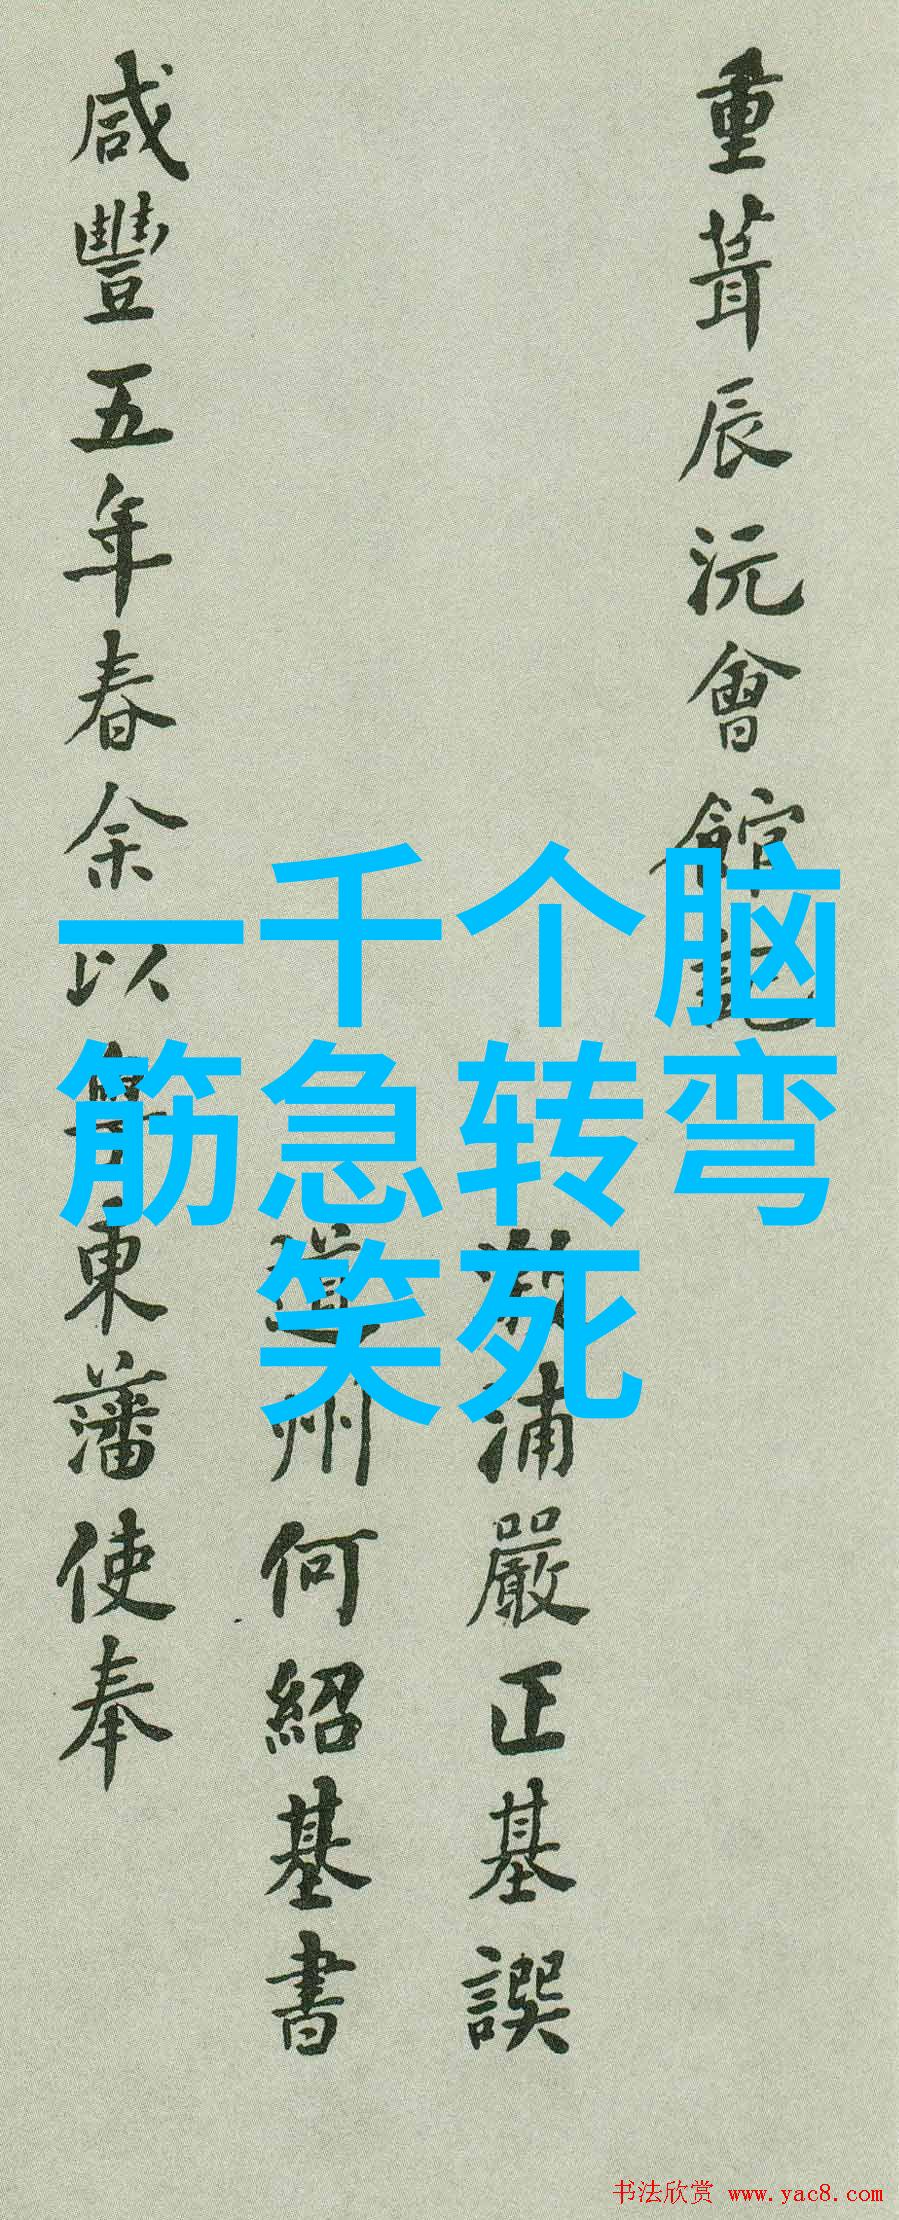 重葺辰沅會館記
漵浦嚴正基譔
道州何紹基書
咸豐五年春余以粵東藩使奉
一千个脑
筋急转弯
笑死
书法欣赏 www.yac8.com